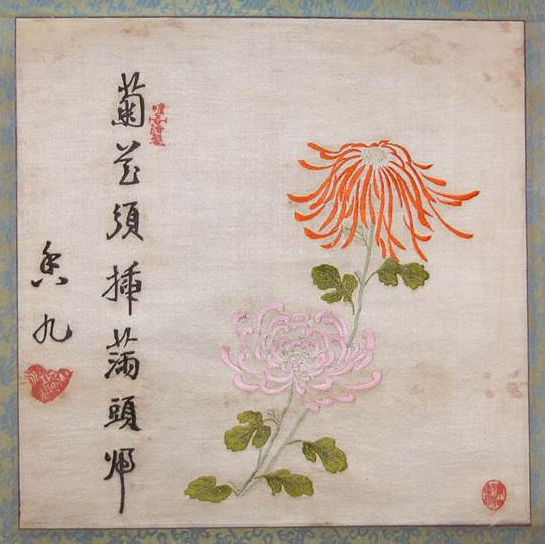 菊花須插滿頭歸
香九